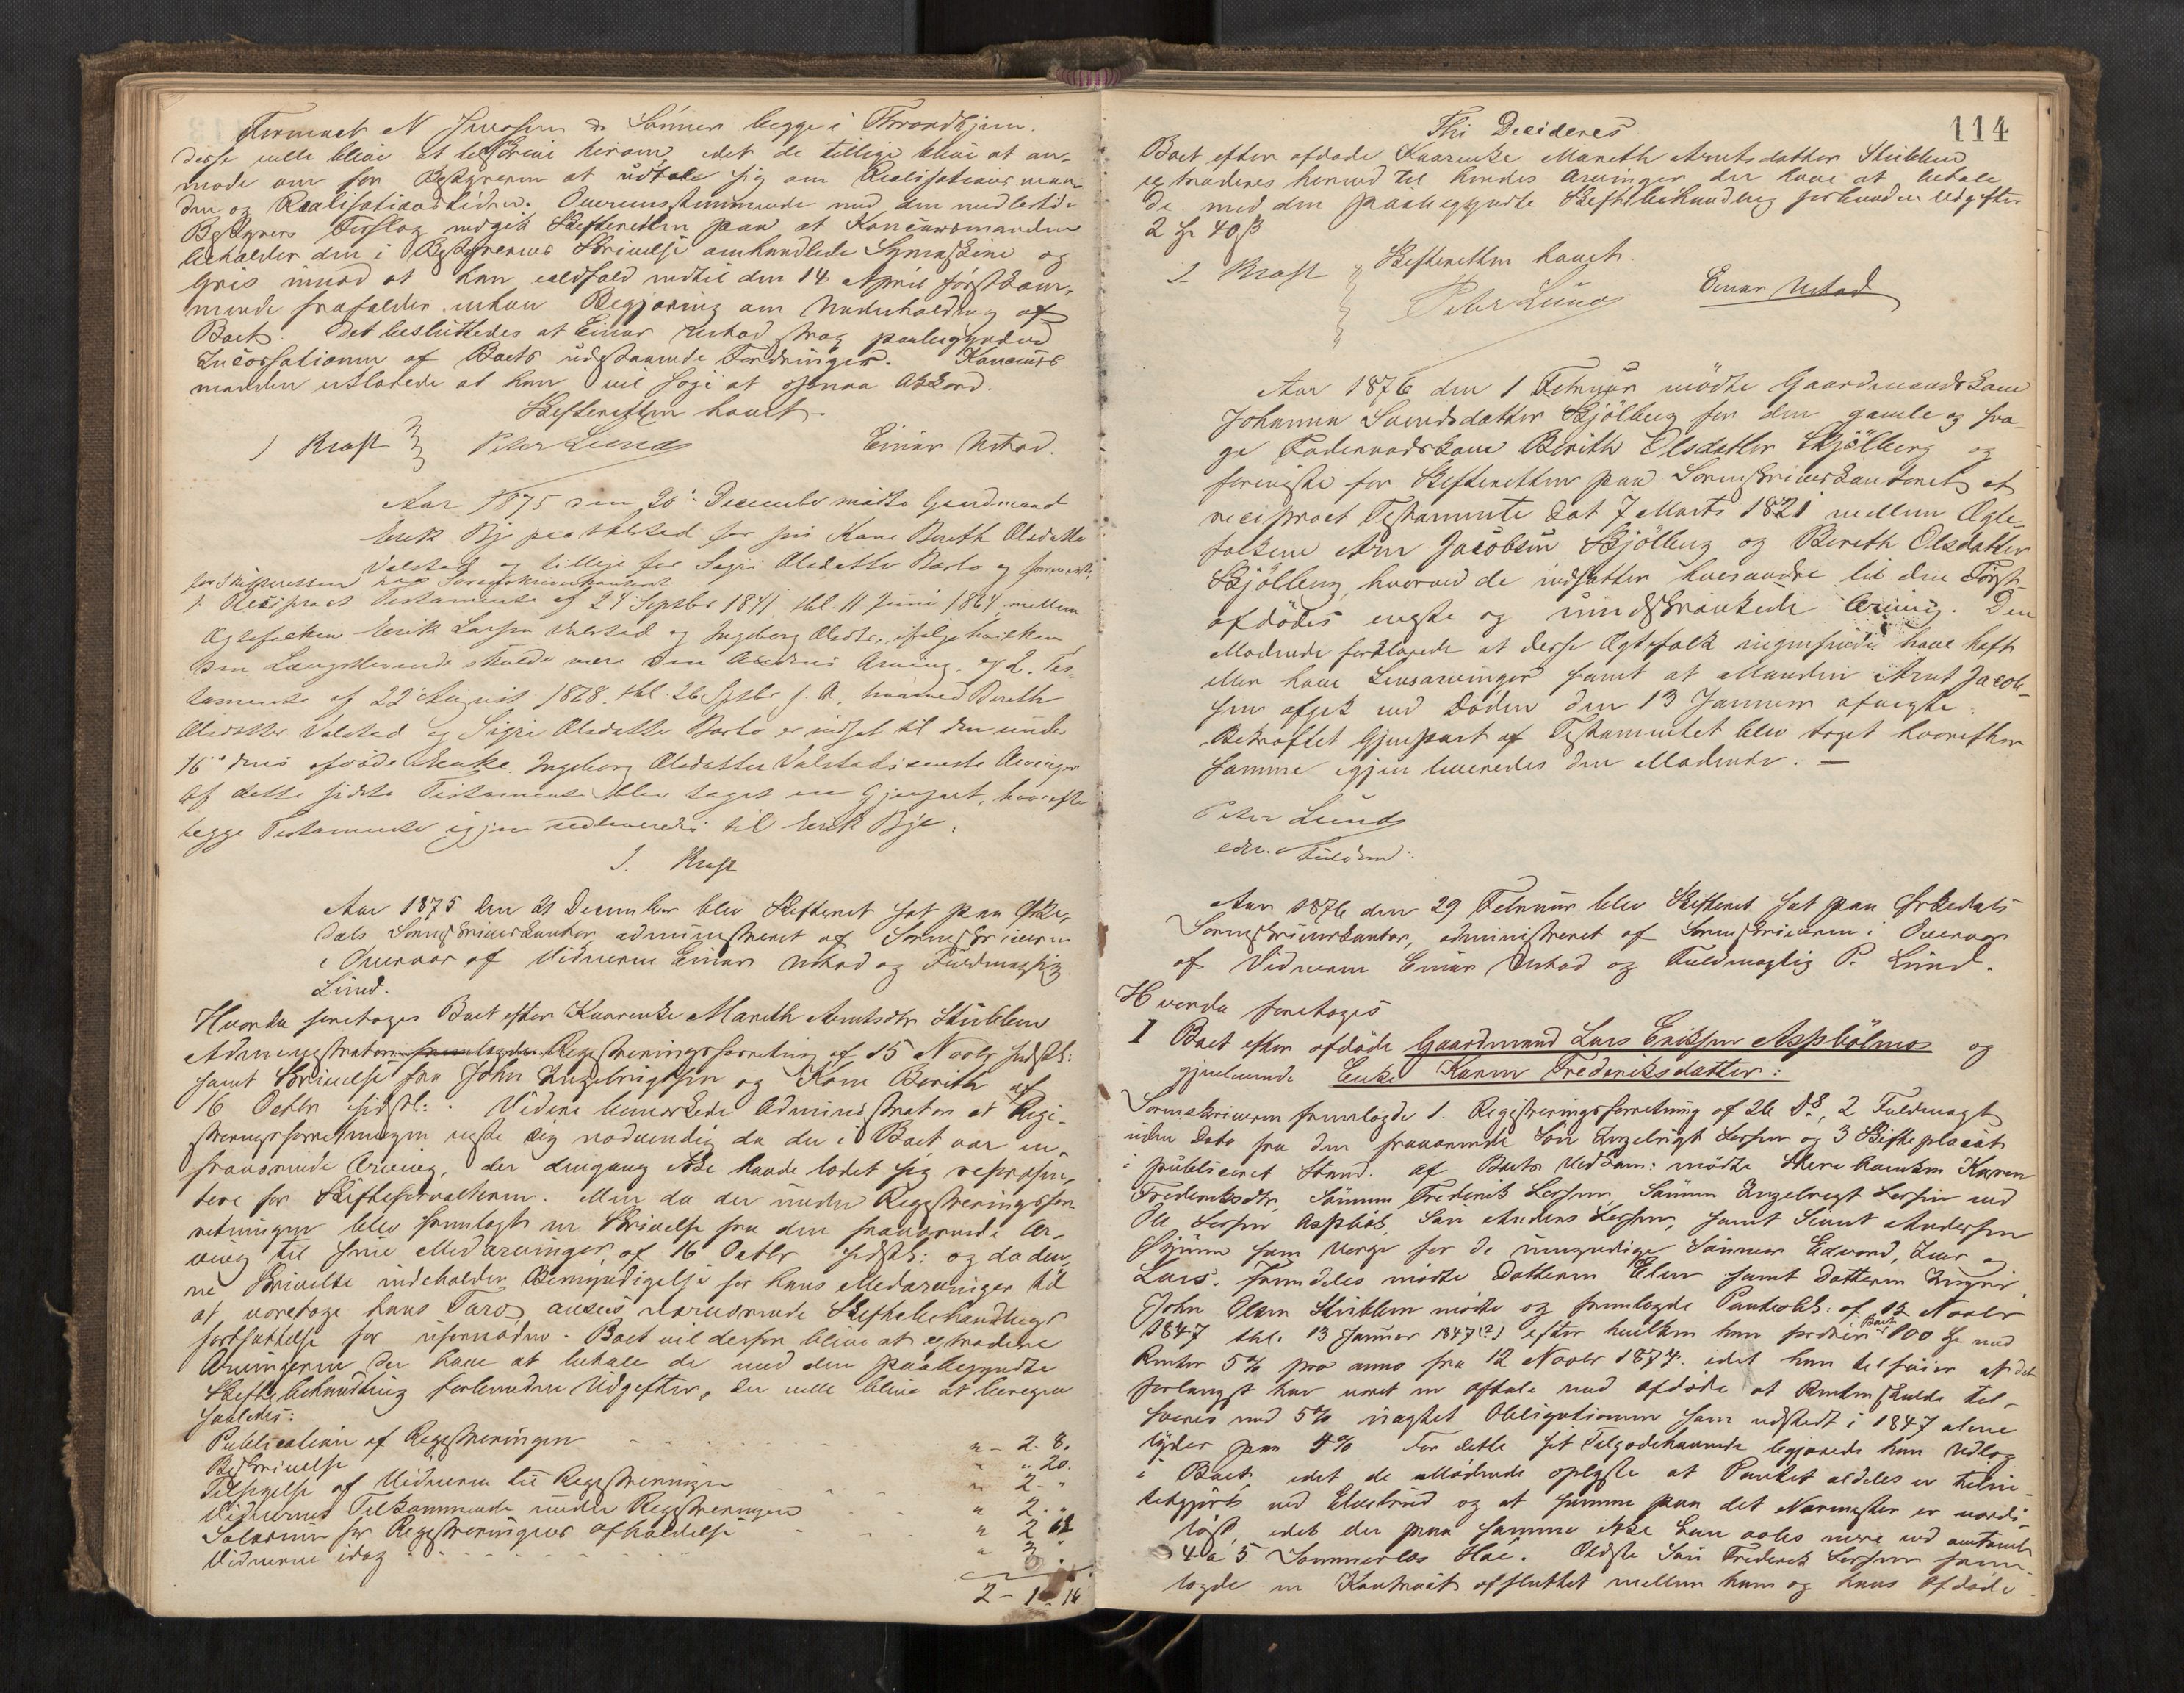 Firmaet N Jenssen & Sønner begge i Throndhjem.
Disse ville blive at tilskrive herom, idet de tillige blive at an-
mode om for Bestyreren at udtale sig om Realisationsmaa-
den og Realisationstiden. Overensstemmende med den midlertidige
Bestyrers Forslag indgik Skifteretten paa at Konkursmanden
beholder den i Bestyrerens Skrivelse omhandlede Symaskine og
Gris imod at han ialdfald indtil den 14 April førstkom-
mende frafalder enhver Begjæring om Underholdning af
Boet. Det besluttedes at Einar Urstad strax paabegynder
Incassationen af Boets udestaaende Fordringer. Koncurs
manden erklærede at han vil søge at opnaa Akkord.
Skifteretten hævet.
J Kraft Peter Lund Einar Urstad.
Aar 1875 den 20de December mødte Gaardmand
Erik Bye paa Valstad for sin Kone Bereth Olsdatter
Valstad og tillige for Sigri Olsdatter Barlo og foreviste
for Skifteretten paa Sorenskriverkontoret
1. Reciproct Testamente af 24 Septbr 1841 thl. 11 Juni 1864 mellem
Ægtefolkene Erik Larsen Valstad og Ingeborg Olsdtr, ifølge hvilken
den Længstlevende skulde være den Andens Arving, og 2. Tes-
tamente af 22 August 1868. thl. 26 Septbr s. A. hvorved Bereth
Olsdatter Valstad og Sigri Olsdatter Barlo er indsat til den under
16de dns afdøde Enke Ingeborg Olsdatter Valstads eneste Arvinger
Af dette sidste Testamente blev taget en Gjenpart, hvorefter
begge Testamenter igjen udleveredes til Erik Bye.
J. Kraft
Aar 1875 den 21 December blev Skifteret sat paa Orke-
dals Sorenskriverkontor, administreret af Sorenskriveren
i Overvær af Vidnerne Einar Urstad og Fuldmægtig
Lund.
Hvorda foretoges Boet efter Kaarenke Mareth Arntsdtr Stubben
Administrator fremlagde Registreringsforretning af 15 Novbr sidstl:
samt Skrivelse fra John Ingebrigtsen og Kone Berith af
16 Octbr sidstl: Videre bemærkede Administrator at Regi-
streringsforretningen viste sig nødvendig da der i Boet var en
fraværende Arving, der dengang ikke havde ladet sig repræsen-
tere for Skifteforvalteren. Men da der under Registreringsfor
retningen blev fremlagt en Skrivelse fra den fraværende Ar-
ving til sine Medarvinger af 16 Octbr sidstl: og da den-
ne Skrivelse indeholder Bemyndigelse for hans Medarvinger til
at varetage hans Tarv, ansees nærværende Skiftebehandlings
fortsættelse for ufornøden. Boet vil derfor blive at extradere
Arvingerne der have at betale de med den paabegyndte
Skiftebehandling forbundne Udgifter, der ville blive at beregne
saaledes:
Publication af Registreringen " - 2. 8.
Beskrivelse " " 20.
Tilsigelse af Vidnerne til Registreringen " 2. "
Vidnernes Tilkommende under Registreringen " 2. "
Salarium for Registreringens afholdelse " 2 12
Vidnerne idag " 3 "
2 - 1 - 16
114
Thi Decideres
Boet efter afdøde Kaarenke Mareth Arntsdatter Stubben
extraderes herved til hendes Arvinger der have at betale
de med den paabegyndte Skiftebehandling forbundne Udgifter
2 Spd 40 ß
Skifteretten hævet.
J Kraft Peter Lund Einar Urstad
Aar 1876 den 1 Februar mødte Gaardmandskone
Johanna Svendsdatter Skjølberg for den gamle og sva-
ge Føderaadskone Berith Olsdatter Skjølberg og
foreviste for Skifteretten paa Sorenskriverkontoret et
reciproct Testamente dat 7 Marts 1821 mellem Ægte-
folkene Arn Jacobsen Skjølberg og Bereth Olsdatter
Skjølberg, hvorved de indsætter hverandre til den Først-
afdødes eneste og uindskrænkede Arving. Den
Mødende forklarede at disse Ægtefolk ingensinde have havt
eller have Livsarvinger samt at Manden Arnt Jacob-
sen afgik ved Døden den 13 Januar afvigte.
Bekræftet Gjenpart af Testamentet blev taget hvorefter
samme igjen leveredes den Mødende. —
Peter Lund
edsv. Fuldm:
Aar 1876 den 29 Februar blev Skifteret sat paa Orkedals
Sorenskriverkontor, administreret af Sorenskriveren i Overvær
af Vidnerne Einar Urstad og Fuldmægtig P. Lund.
Hvorda foretoges
I Boet efter afdøde Gaardmand Lars Eriksen Aspbølmo og
gjenlevende Enke Karen Frederiksdatter:
Sorenskriveren fremlagde 1. Registreringsforretning af 26 ds, 2 Fuldmagt
uden Dato fra den fraværende Søn Ingebrigt Larsen og 3 Skifteplacat
i publiceret Stand. Af Boets Vedkom: mødte Skrivekonen Karen
Frederiksdtr, Sønnen Frederik Larsen, Sønnen Ingebrigt Larsen ved
Ole Larsen Aspbøl, Søn Anders Larsen, samt Sivert Andersen
som Verge for de umyndige Sønner Edvard, Iver og
Lars. Fremdeles mødte Datteren Elen samt Datteren Ingri.
John Olsen Stubben mødte og fremlagde Panteobl: af 12 Novbr
1847 thl. 13 Januar 1847(?) efter hvilken han fordrer i Boet 100 Spd med
Renter 5% pro anno fra 12 Novbr 1874. idet han tilføier at det
forlængst har været en Aftale med Afdøde at Renten skulde til-
svares med 5% uagtet Obligationen som udstedt i 1847 alene
lyder paa 4% For dette sit Tilgodehavende begjærede han Udlæg
i Boet, idet de Mødende oplyste at Pantet aldeles er tilin-
tetgjort ved Elvebrud og at samme paa det Nærmeste er værdi-
løst, idet der paa samme ikke kan avles mere end omtrent
4 a 5 Sommerlæs Hø. Ældste Søn Frederik Larsen frem-
lagde en Kontrakt afsluttet mellem ham og hans Afdøde